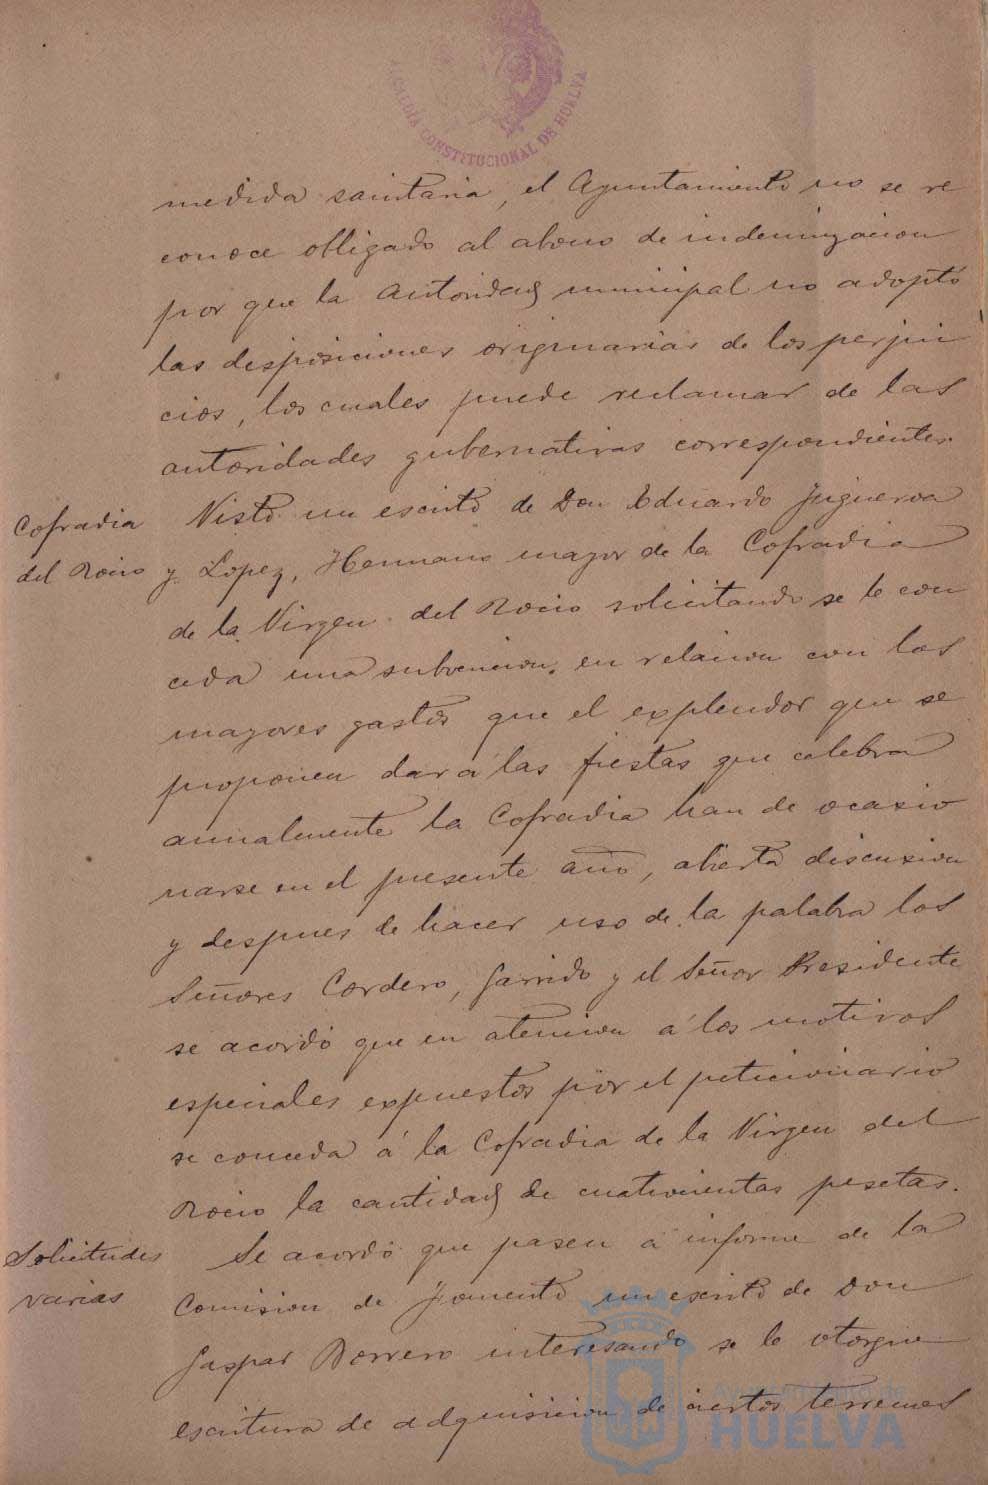 ALCALDÍA CONSTITUCIONAL DE HUELVA
medida sanitaria, el Ayuntamiento no se re
conoce obligado al abono de indemnizacion
por que la autoridad municipal no adoptó
las desposiciones originarias de los perjui
cios, los cuales puede reclamar de las
autoridades gubernativas correspondientes.
Cofradia
del Rocio
Visto un escrito de Don Eduardo Figueroa
y Lopez, Hermano mayor de la Cofradia
de la Virgen del Rocio solicitando se le con
ceda una subvencion, en relacion con los
mayores gastos que el explendor que se
proponen dar á las fiestas que celebra
anualmente la Cofradia han de ocasio
narse en el presente año, abierta discusion
y despues de hacer uso de la palabra los
Señores Cordero, Garrido y el Señor Presidente
se acordó que en atencion á los motivos
especiales expuestos por el peticionario
se conceda á la Cofradia de la Virgen del
Rocio la cantidad de cuatrocientas pesetas.
Solicitudes
varias
Se acordó que pasen a informe de la
Comision de Fomento un escrito de Don
Gaspar Borrero interesando se le otorgue
escritura de adquisicion de ciertos terrenos
Ayuntamiento de
HUELVA